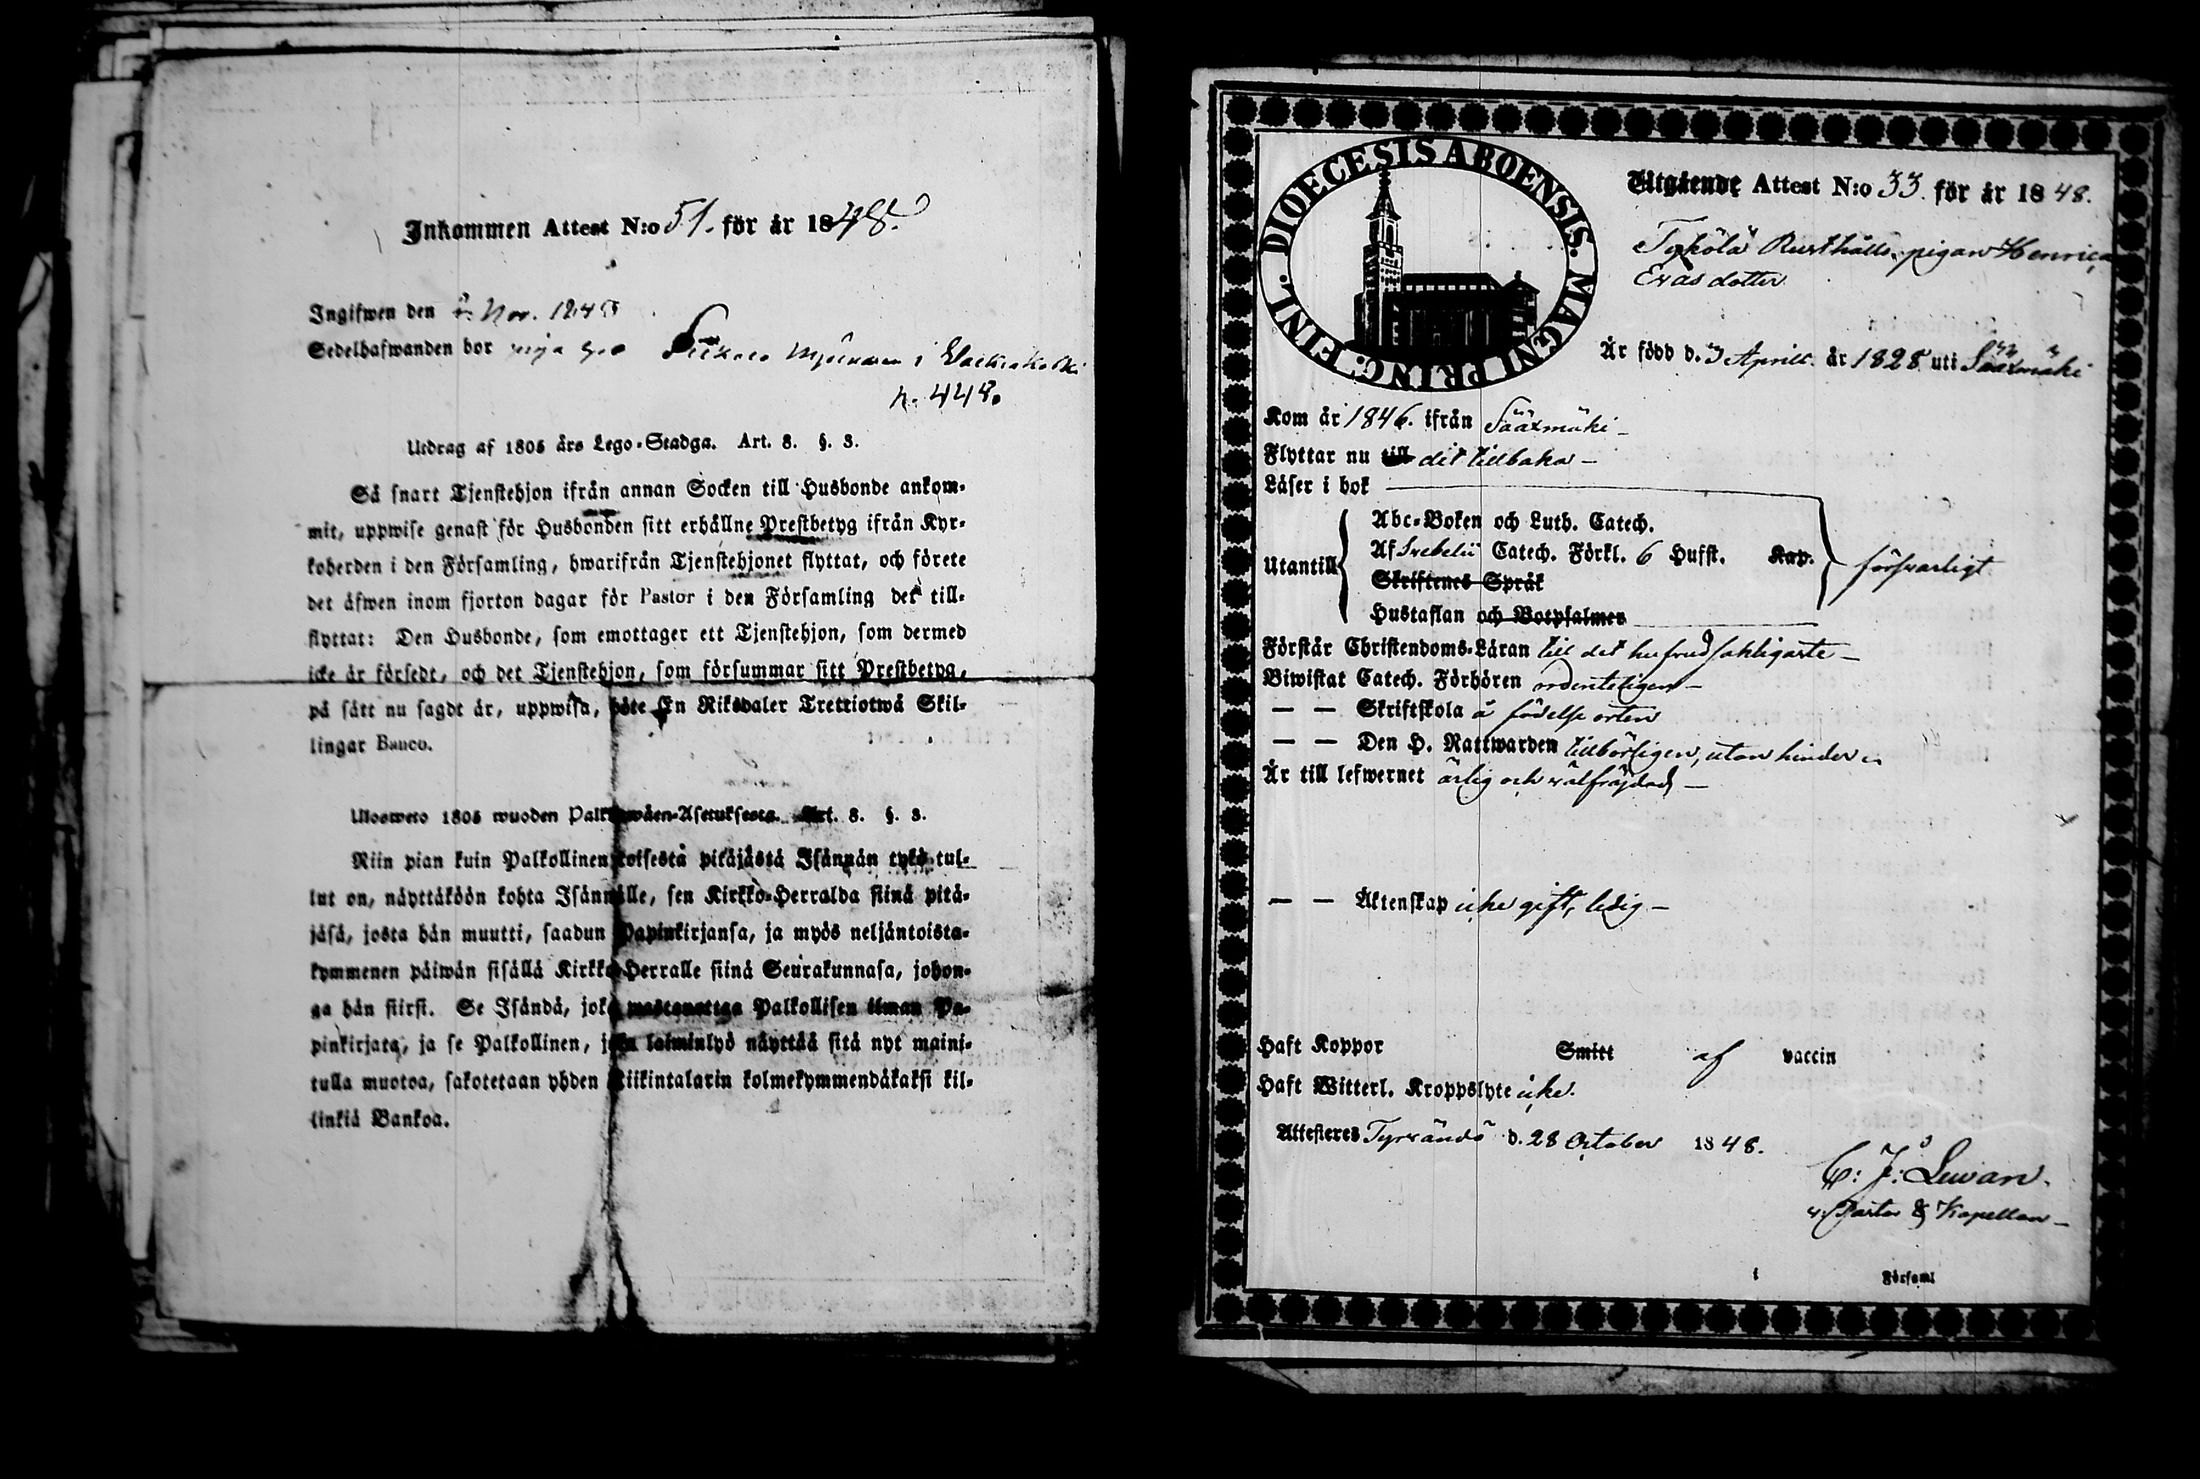 Inkommen Attest N:o 51. för år 1848.
Ingifwen den Nov. 1848
Sedelhafwanden bor
p. 448.
Utdrag af 1805 års Lego-Stadga. Art. 8. §. 3.
Så snart Tjenstehjon ifrån annan Socken till Husbonde ankom-
mit, uppwise genast för Husbonden sitt erhållne Prestbetyg ifrån Kyr-
koherden i den Församling, hwarifrån Tjenstehjonet flyttat, och förete
det äfwen inom fjorton dagar för Pastor i den Församling det till-
flyttat: Den Husbonde, som emottager ett Tjenstehjon, som dermed
icke är försedt, och det Tjenstehjon, som försummar sitt Prestbetyg,
på sätt nu sagdt är, uppwisa, böte En Riksdaler Trettiotwå Skil-
lingar Banco.
Ulosweto 1805 wuoden Palkkawäen-Asetuksesta. Art. 8. §. 3.
Niin pian kuin Palkollinen toisesta pitäjästä Isännän tykö tul-
lut on, näyttäköön kohta Isännälle, sen Kirkko-Herralda siinä pitä-
jäsä, josta hän muutti, saadun Papinkirjansa, ja myös neljäntoista-
kymmenen päiwän sisällä Kirkko-Herralle siinä Seurakunnasa, johon-
ga hän siirsi. Se Isändä, joka wastaanottaa Palkollisen ilman Pa-
pinkirjata, ja se Palkollinen, joka laiminlyö näyttää sitä nyt maini-
tulla muotoa, sakotetaan yhden Riikintalarin kolmekymmendäkaksi kil-
linkiä Bankoa.
DIOECESIS ABOENSIS. MAGNI PRINC. FINL.
Utgående Attest N:o 33. för år 1848.
Tykölä Rusthålls pigan Henrica
Exasdotter
Är född d. 3 April. år 1828 uti Sääxmäki
Kom år 1846. ifrån Sääxmäki
Flyttar nu till dit tillbaka
Läser i bok
Abc-Boken och Luth. Catech.
Utantill Af Svebelii Catech. Förkl. 6 Hufst. Kap. försvarligt
Skriftenes Språk
Hustaflan och Botpsalmer
Förstår Christendoms-Läran till det hufvudsakligaste
Biwistat Catech. Förhören ordenteligen
— — Skriftskola å födelse orten
— — Den H. Nattwarden tillbörligen, utan hinder
Är till lefwernet ärlig och välfräjdad
— — Äktenskap icke gift, ledig
Haft Koppor Smitt af vaccin
Haft Witterl. Kroppslyte icke.
Attesteres Tyrvändö d. 28 October 1848.
C: J: Lewan.
v. Pastor & Kapellan
i Församl